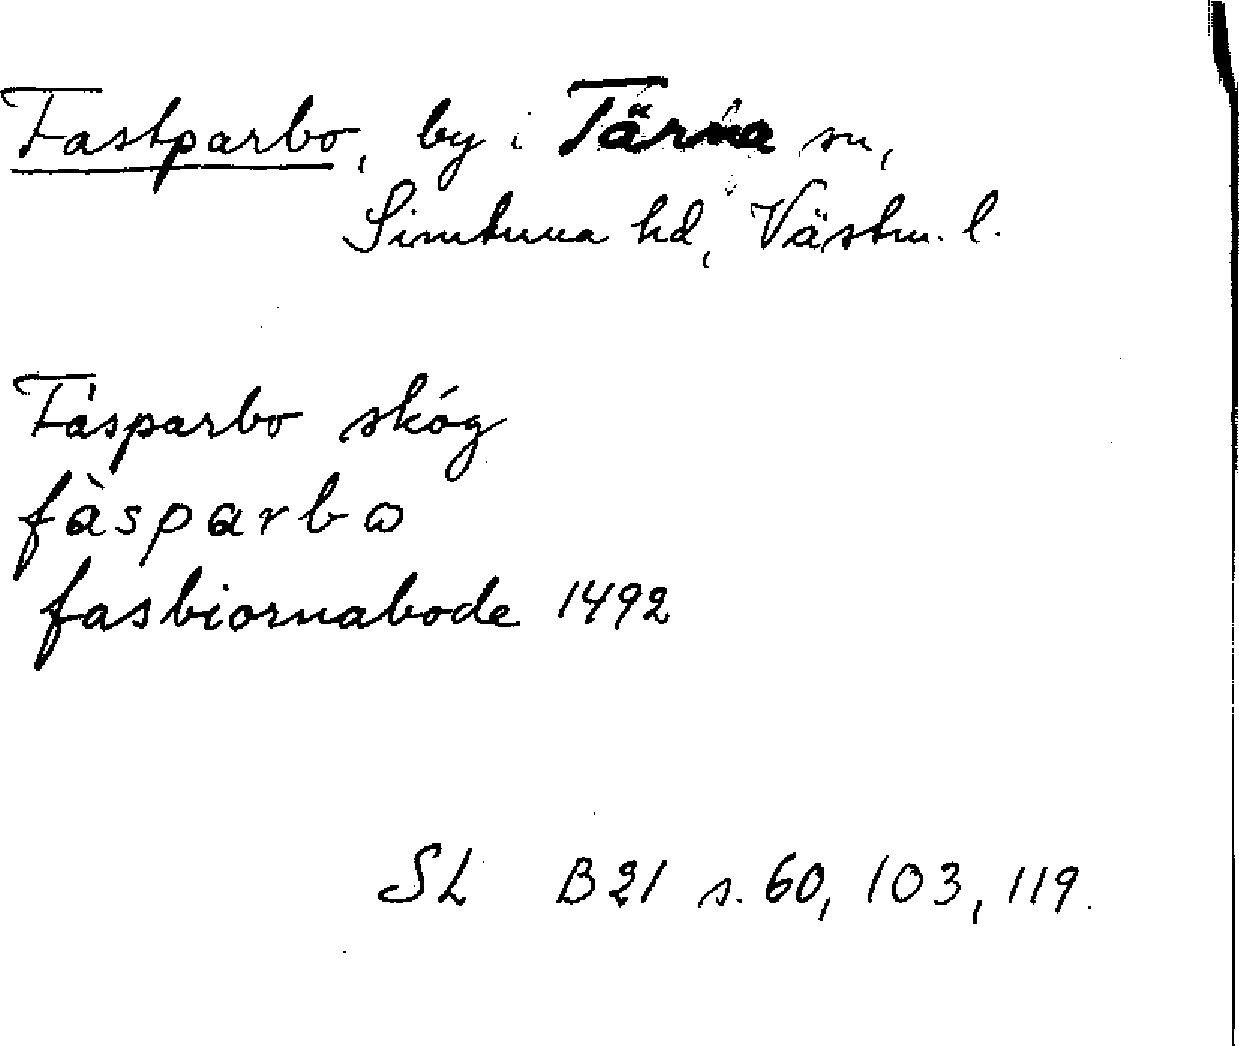 Fastparbo, by i Tärna sn,
Simtuna hd, Västm. l.
Fàsparbo skóg
fàsparbω
fasbiornabode 1492
SL B21 s. 60, 103, 119.